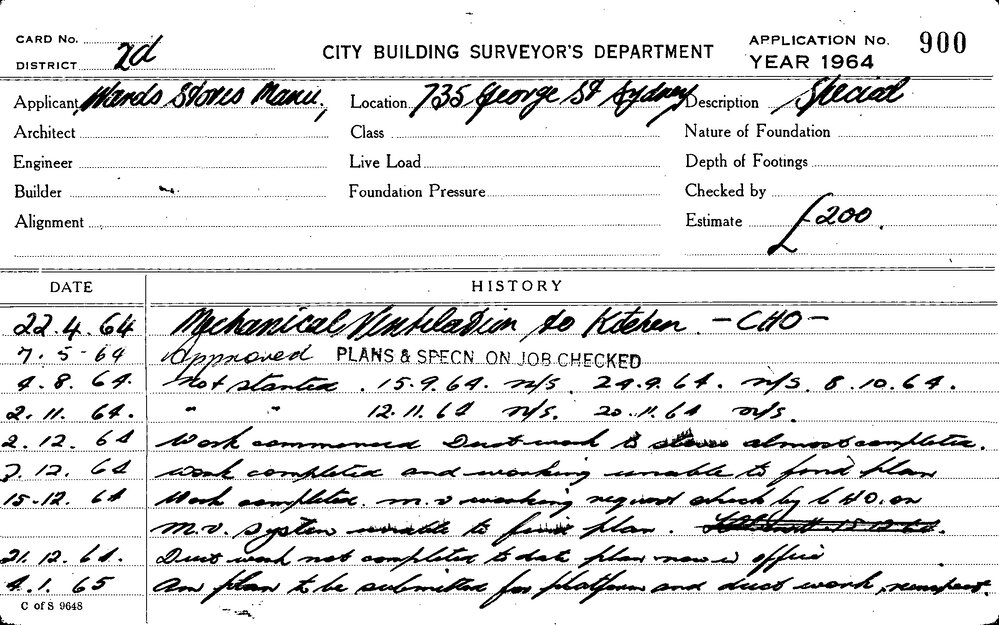 CARD No.
DISTRICT 2d
CITY BUILDING SURVEYOR'S DEPARTMENT
APPLICATION No. 900
YEAR 1964
Applicant Wards Stores Manu, Location 735 George St Sydney Description Special
Architect Class Nature of Foundation
Engineer Live Load Depth of Footings
Builder Foundation Pressure Checked by
Alignment Estimate £200.
DATE HISTORY
22.4.64 Mechanical Ventilation to Kitchen - CHO -
7.5-64 Approved PLANS & SPECN ON JOB CHECKED
4.8.64. Not started. 15.9.64. n/s. 24.9.64. n/s. 8.10.64.
2.11.64. " " 12.11.64 n/s. 20.11.64 n/s.
2.12.64 Work commenced Duct work to almost completed.
7.12.64 Work completed and working unable to find plan
15.12.64 Work completed. m.v working request check by CHO. on
M.V. system unable to find plan.
21.12.64. Duct work not completed to date plan now in office
4.1.65 Am plan to be submitted for platform and duct work, reinspect.
C of S 9648